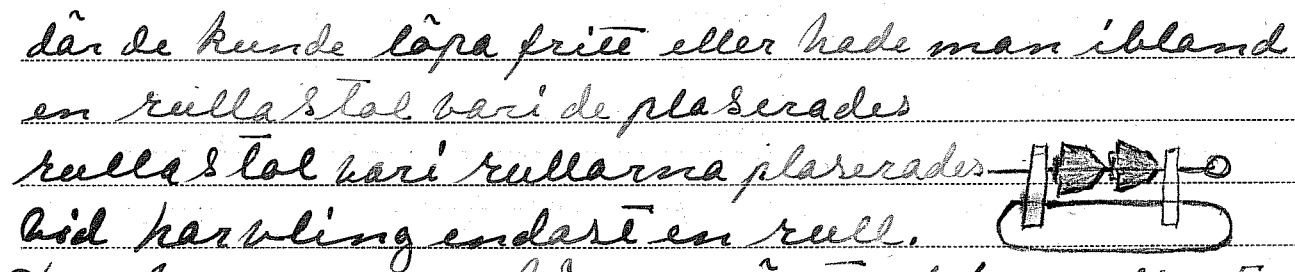 där de kunde löpa fritt eller hade man ibland
en rullastol vari de plaserades
rullastol vari rullarna plaserades
vid harvling endast en rull.